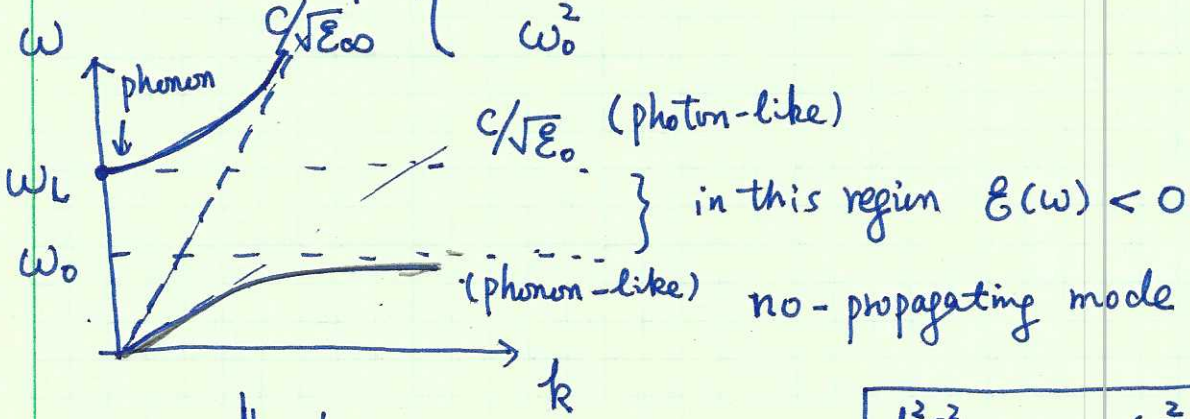 c/√ε∞ ( ω₀²
ω
phonon
c/√ε₀ (photon-like)
ω_L
} in this region ε(ω) < 0
ω₀
(phonon-like) no-propagating mode
k